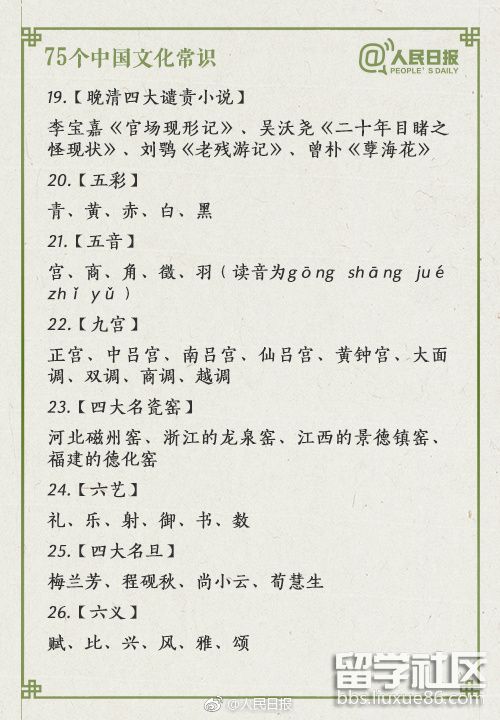 75个中国文化常识
@人民日报
PEOPLE'S DAILY
19.【晚清四大谴责小说】
李宝嘉《官场现形记》、吴沃尧《二十年目睹之
怪现状》、刘鹗《老残游记》、曾朴《孽海花》
20.【五彩】
青、黄、赤、白、黑
21.【五音】
宫、商、角、徵、羽(读音为gōng shāng jué
zhǐ yǔ)
22.【九宫】
正宫、中吕宫、南吕宫、仙吕宫、黄钟宫、大面
调、双调、商调、越调
23.【四大名瓷窑】
河北磁州窑、浙江的龙泉窑、江西的景德镇窑、
福建的德化窑
24.【六艺】
礼、乐、射、御、书、数
25.【四大名旦】
梅兰芳、程砚秋、尚小云、荀慧生
26.【六义】
赋、比、兴、风、雅、颂
留学社区
bbs.liuxue86.com
@人民日报